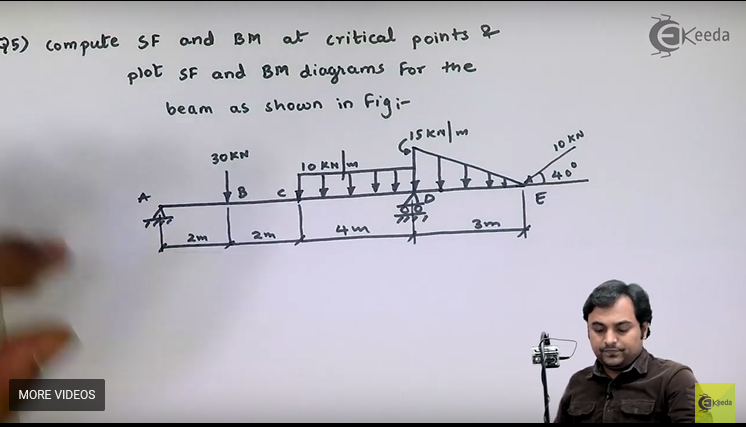 Q5) compute SF and BM at critical points &
plot SF and BM diagrams For the
beam as shown in Fig:-
Ekeeda
30KN
10 KN/m
15KN/m
10 KN
40°
A
B
C
D
E
2m
2m
4m
3m
MORE VIDEOS
Ekeeda